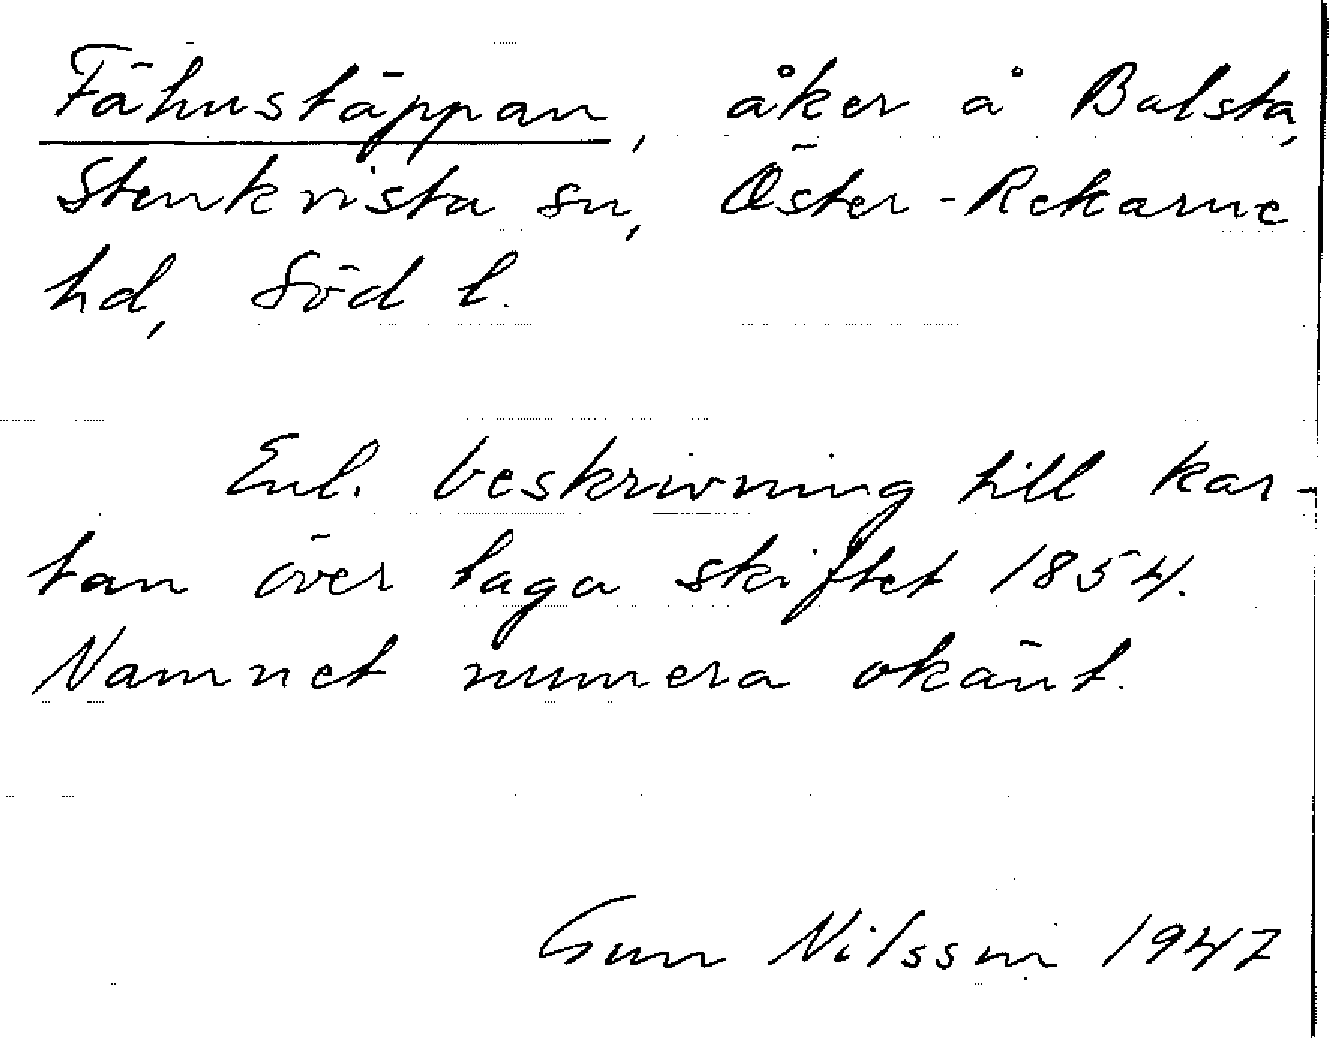 Fähustäppan, åker å Balsta,
Stenkvista sn, Öster-Rekarne
hd, Söd l.
Enl. beskrivning till kar-
tan över laga skiftet 1854.
Namnet numera okänt.
Gun Nilsson 1947